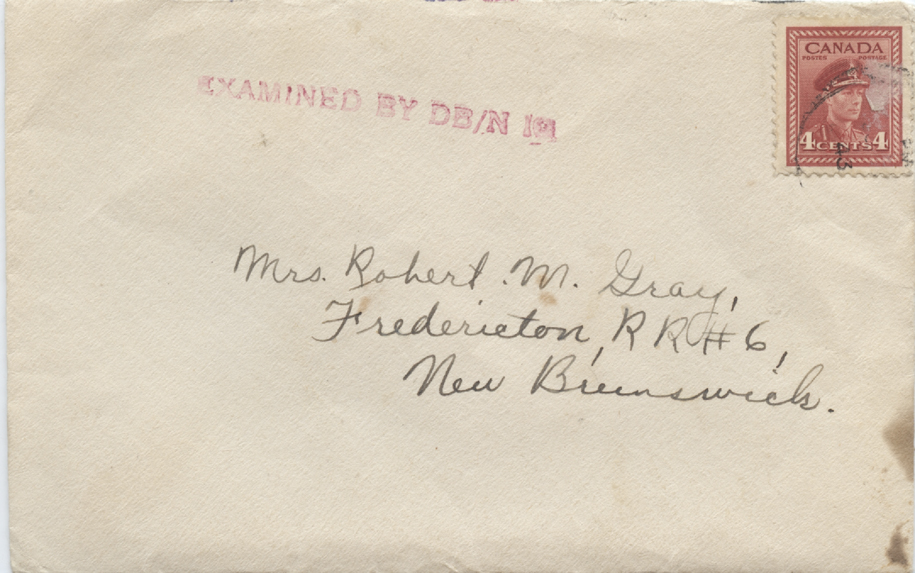 EXAMINED BY DB/N
CANADA
POSTES POSTAGE
4 CENTS 4
43
Mrs. Robert. M. Gray,
Fredericton, R R #6,
New Brunswick.